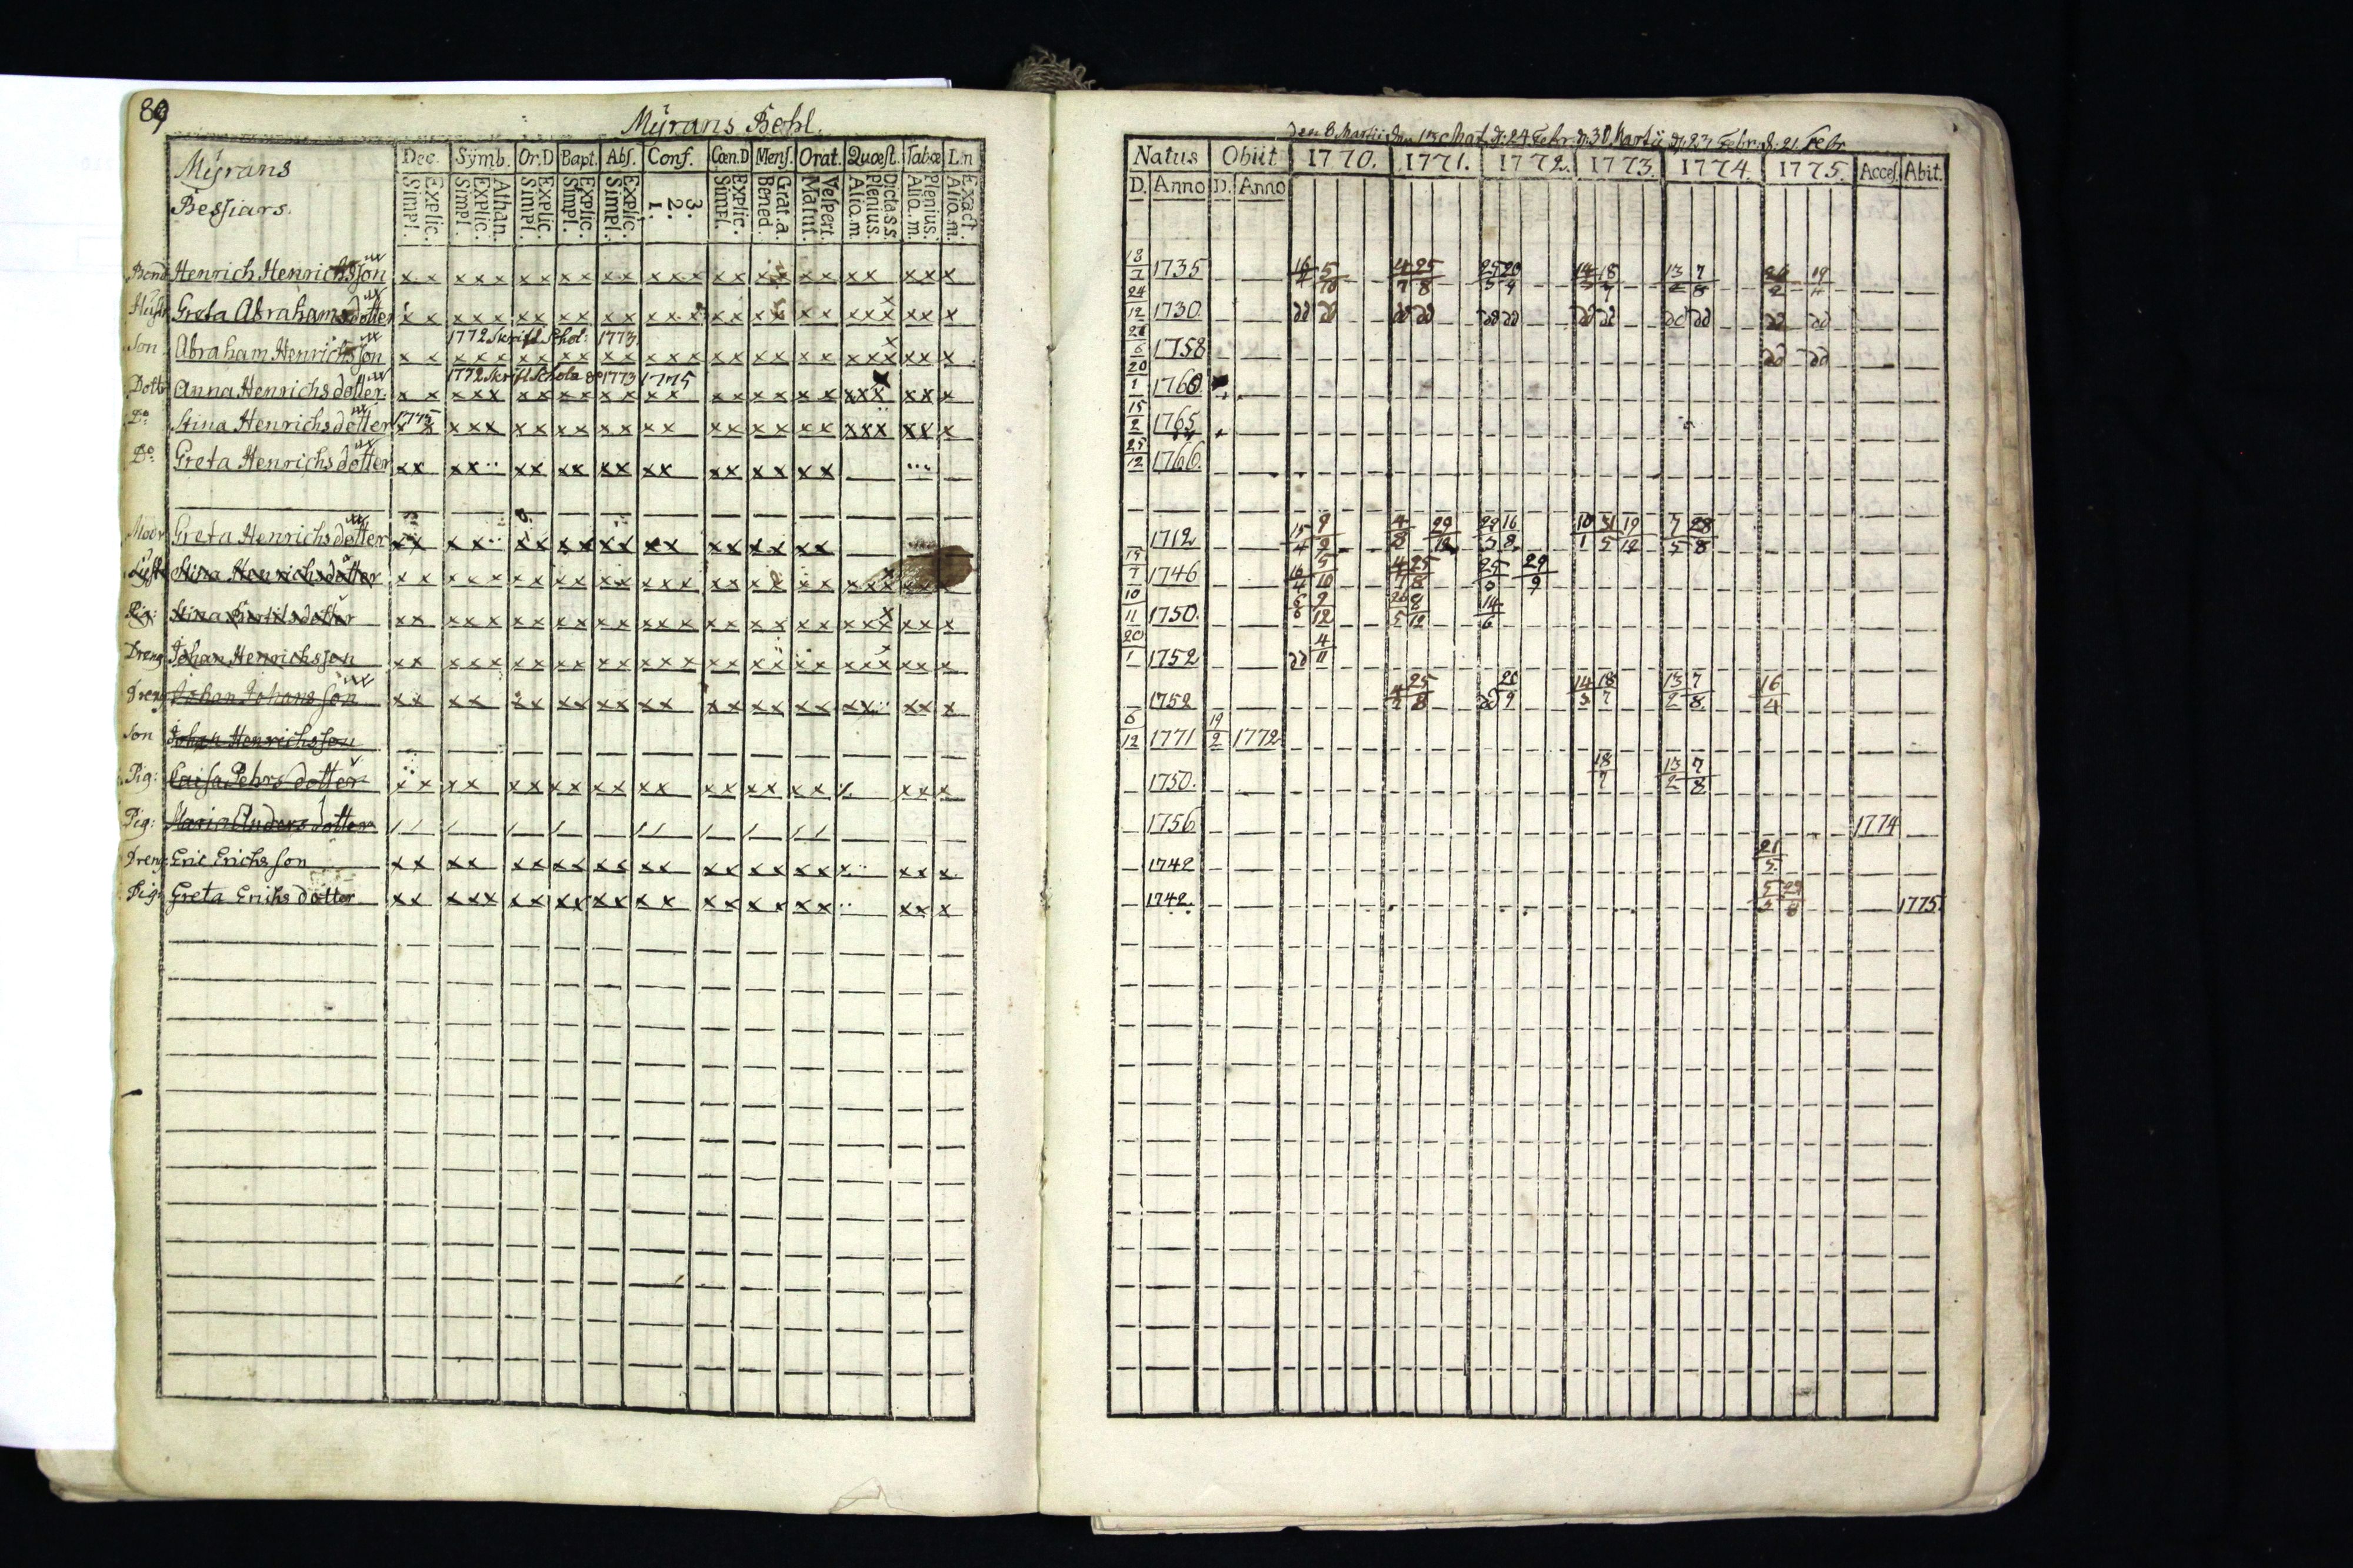 89
Myrans Bohl.
Myrans
Bessiars.
Dec. Symb. Or.D Bapt. Abs. Conf. Cœn.D Mens. Orat. Quæst. Tabœ L.n
Simpl. Explic. Simpl. Explic. Athan. Simpl. Explic. Simpl. Explic. Simpl. Explic. 1. 2. 3. Simpl. Explic. Bened. Grat.a. Matut. Vespert. Aliq.m Plenius. Dicta S.S. Aliq.m. Plenius. Aliq.m. Exact.
Bond Henrich Henrichsson x x x x x x x x x x x x x x x x x x x x x x x x x x
Hust Greta Abrahamsdotter x x x x x x x x x x x x x x x x x x x x x x x x x x
1772 Skrift Schol: 1773
Son Abraham Henrichsson x x x x x x x x x x x x x x x x x x x x x x x x x x
1772 Skrift Schola 1773 1775
Dotter Anna Henrichsdotter x x x x x x x x x x x x x x x x x x x x x x x x
1775
Do Stina Henrichsdotter x x x x x x x x x x x x x x x x x x x x x x x x
Do Greta Henrichsdotter x x x x x x x x x x x x x x x x x x
Moor Greta Henrichsdotter x x x x x x x x x x x x x x x x x x
Syst Stina Henrichsdotter x x x x x x x x x x x x x x x x x x x x x
Pig: Stina Bertilsdotter x x x x x x x x x x x x x x x x x x x x x x x x
Dreng Johan Henrichsson x x x x x x x x x x x x x x x x x x x x x x x x
Dreng Johan Johansson x x x x x x x x x x x x x x x x x x x x x x
Son Johan Henrichsson
Pig: Caisa Pehrsdotter x x x x x x x x x x x x x x x x x x x x x
Pig: Maria Andersdotter
Dreng Eric Erichsson x x x x x x x x x x x x x x x x x x x x x
Pig: Greta Erichsdotter x x x x x x x x x x x x x x x x x x x x x
den 8 Martii d. 24 Febr. d. 30 Martii d. 23 Febr. d. 21 Febr.
Natus Obiit 1770. 1771. 1772. 1773. 1774. 1775. Acces. Abit.
D. Anno D. Anno
18/7 1735 16/4 5/10 4/7 25/8 25/3 20/9 14/3 18/7 13/2 7/8 19/4
24/12 1730 dd dd dd dd dd dd dd dd dd dd dd dd
1758 dd dd
20/1 1760
15/2 1765
25/12 1766
1712 15/4 9/9 4/8 29/12 29/3 16/8 10/1 31/5 19/12 28/8
15/7 1746 16/4 5/10 4/7 25/8 25/3 29/9
10/11 1750 9/12 8/12 14/6
20/1 1752 dd 4/11
1752 25/8 dd 14/3 18/7 13/2 7/8 16/4
6/12 1771 19/2 1772
1750. 18/7 13/2 7/8
1756 1774
1742 21/5
1742. 1775.